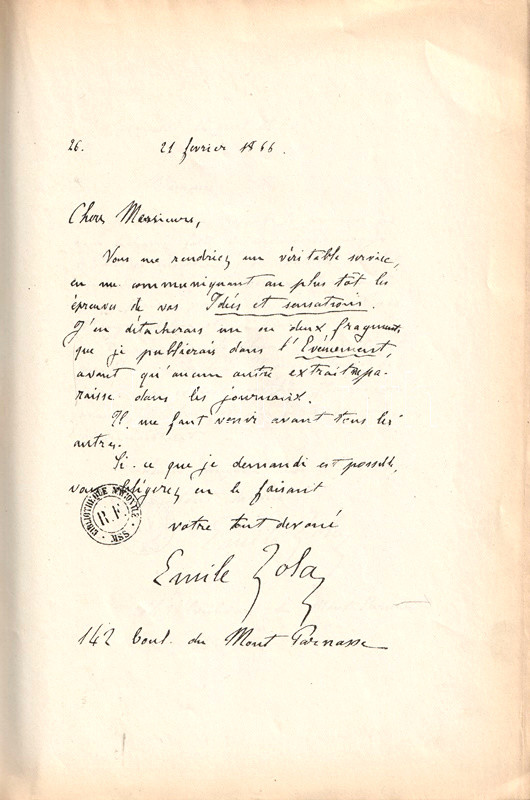 26. 21 fevrier 1866.
Chers Messieurs,
Vous me rendriez un véritable service,
en me communiquant au plus tôt les
épreuves de vos Idées et sensations.
J'en détacherais un ou deux fragments
que je publierais dans l'Evénement,
avant qu'aucun autre extrait ne pa-
raisse dans les journaux.
Il me faut venir avant tous les
autres.
Si ce que je demande est possible,
vous m'obligerez en le faisant
votre tout dévoué
Emile Zola
142 boul. du Mont Parnasse
BIBLIOTHEQUE NATIONALE
R.F.
MSS